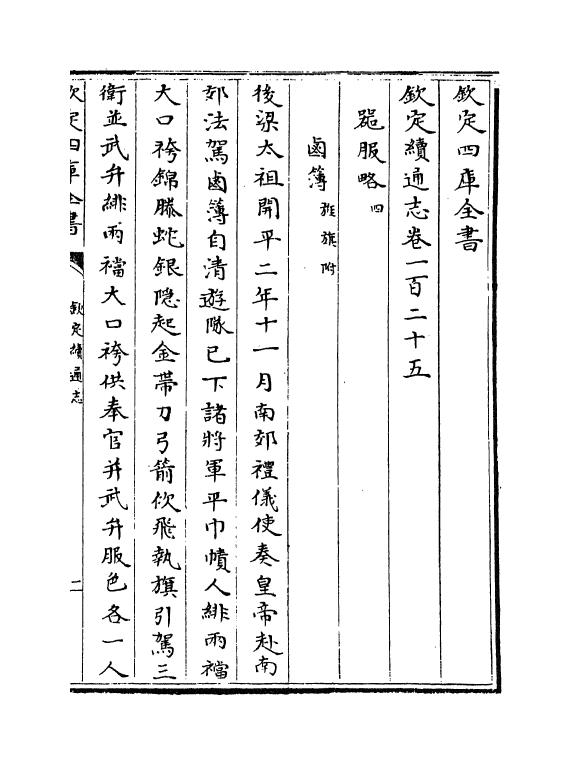 欽定四庫全書
欽定續通志卷一百二十五
器服略四
鹵簿旌旗附
後梁太祖開平二年十一月南郊禮儀使奏皇帝赴南
郊法駕鹵簿自清遊隊已下諸將軍平巾幘人緋兩襠
大口袴錦縢蛇銀隠起金帶刀弓箭佽飛執旗引駕三
衛並武弁緋兩襠大口袴供奉官并武弁服色各一人
欽定四庫全書
欽定續通志